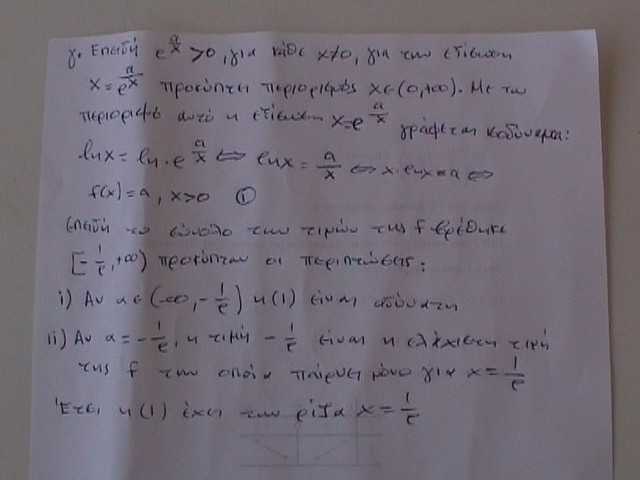 γ. Επειδή e^{α/x} > 0, για κάθε x≠0, για την εξίσωση
x = e^{α/x} προκύπτει περιορισμός x∈(0,+∞). Με τον
περιορισμό αυτό η εξίσωση x=e^{α/x} γράφεται ισοδύναμα:
lnx = ln·e^{α/x} ⇔ lnx = α/x ⇔ x·lnx=α ⇔
f(x)=α, x>0 ①
Επειδή το σύνολο των τιμών της f βρέθηκε
[-1/e, +∞) προκύπτουν οι περιπτώσεις:
i) Αν α∈(-∞, -1/e) η (1) είναι αδύνατη
ii) Αν α = -1/e, η τιμή -1/e είναι η ελάχιστη τιμή
της f την οποία παίρνει μόνο για x = 1/e
Έτσι η (1) έχει την ρίζα x = 1/e